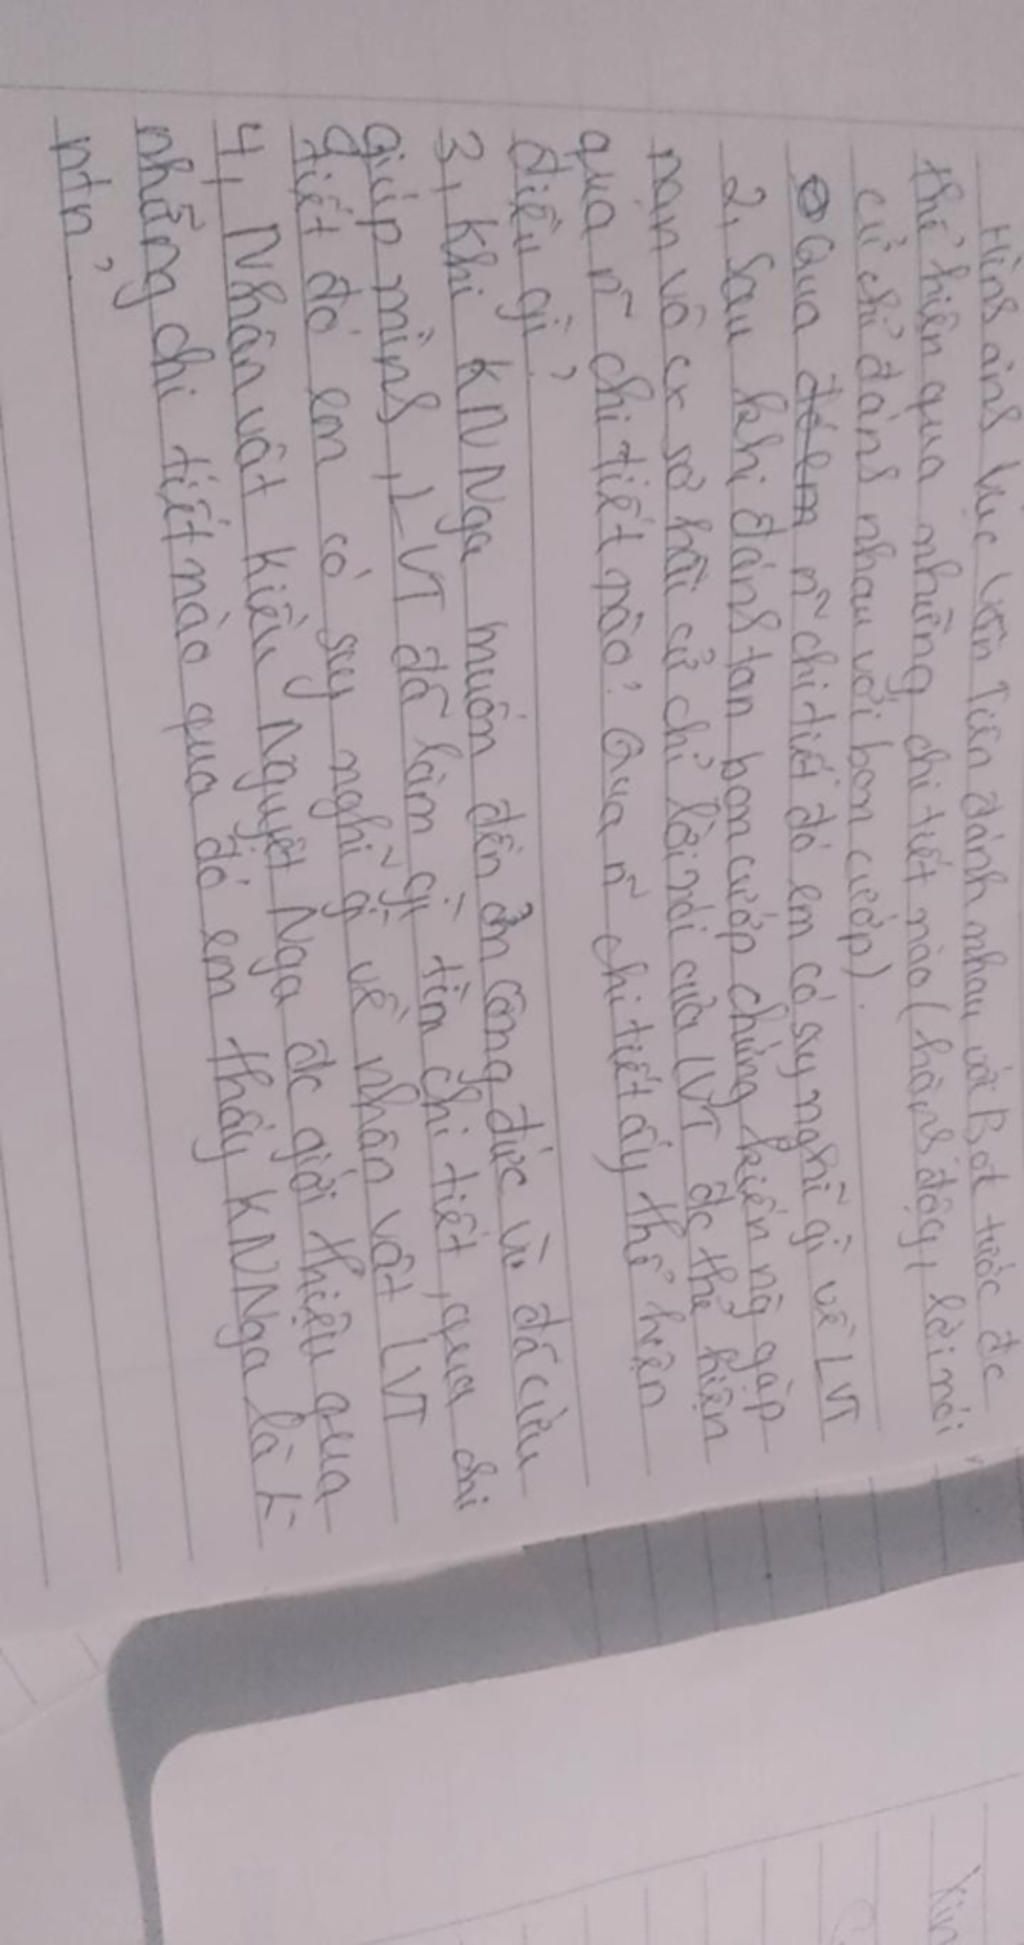 Hình ảnh Lục Vân Tiên đánh nhau với Bọt tước đc
thể hiện qua những chi tiết nào (hành động, lời nói
cử chỉ đánh nhau với bọn cướp).
Qua đó em n~ chi tiết đó em có suy nghĩ gì về LVT
2, Sau khi đánh tan bọn cướp chứng kiến ng gặp
nạn vô cx sợ hãi cử chỉ lời nói của LVT đc thể hiện
qua n~ chi tiết nào? Qua n~ chi tiết ấy thể hiện
điều gì?
3, Khi KNNga muốn đền ơn công đức vì đã cứu
giúp mình, LVT đã làm gì, tìm chi tiết, qua chi
tiết đó em có suy nghĩ gì về nhân vật LVT
4, Nhân vật Kiều Nguyệt Nga đc giới thiệu qua
những chi tiết nào qua đó em thấy KNNga là 1
ntn?
Xin